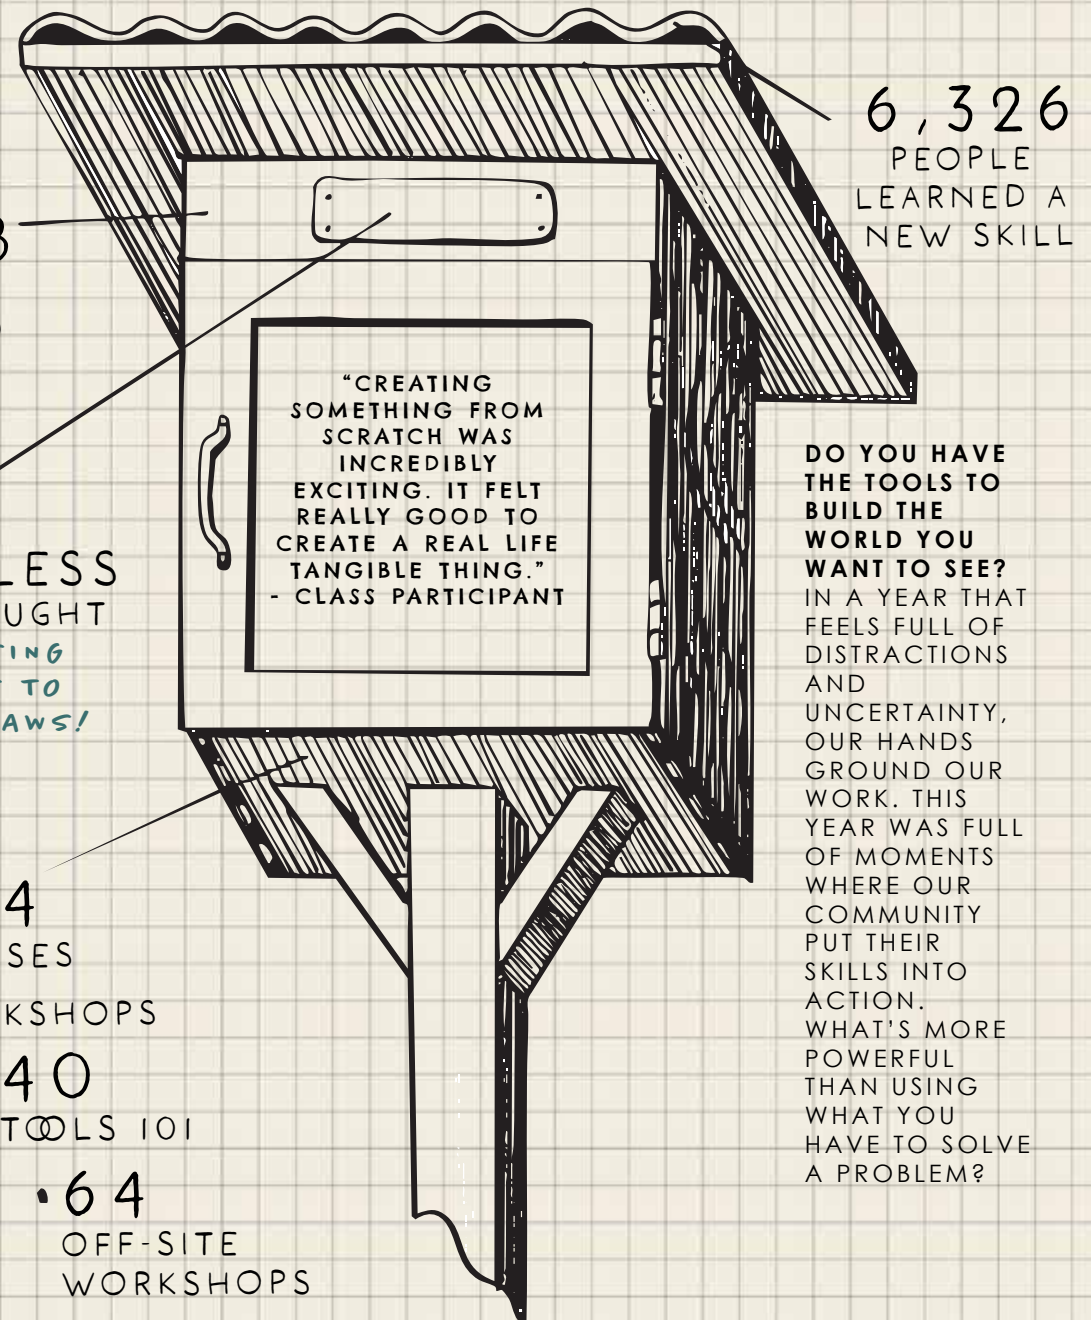 6,326
PEOPLE
LEARNED A
NEW SKILL
"CREATING
SOMETHING FROM
SCRATCH WAS
INCREDIBLY
EXCITING. IT FELT
REALLY GOOD TO
CREATE A REAL LIFE
TANGIBLE THING."
- CLASS PARTICIPANT
DO YOU HAVE
THE TOOLS TO
BUILD THE
WORLD YOU
WANT TO SEE?
IN A YEAR THAT
FEELS FULL OF
DISTRACTIONS
AND
UNCERTAINTY,
OUR HANDS
GROUND OUR
WORK. THIS
YEAR WAS FULL
OF MOMENTS
WHERE OUR
COMMUNITY
PUT THEIR
SKILLS INTO
ACTION.
WHAT'S MORE
POWERFUL
THAN USING
WHAT YOU
HAVE TO SOLVE
A PROBLEM?
LESS
UGHT
TING
TO
AWS!
4
SES
KSHOPS
40
TOOLS 101
•64
OFF-SITE
WORKSHOPS